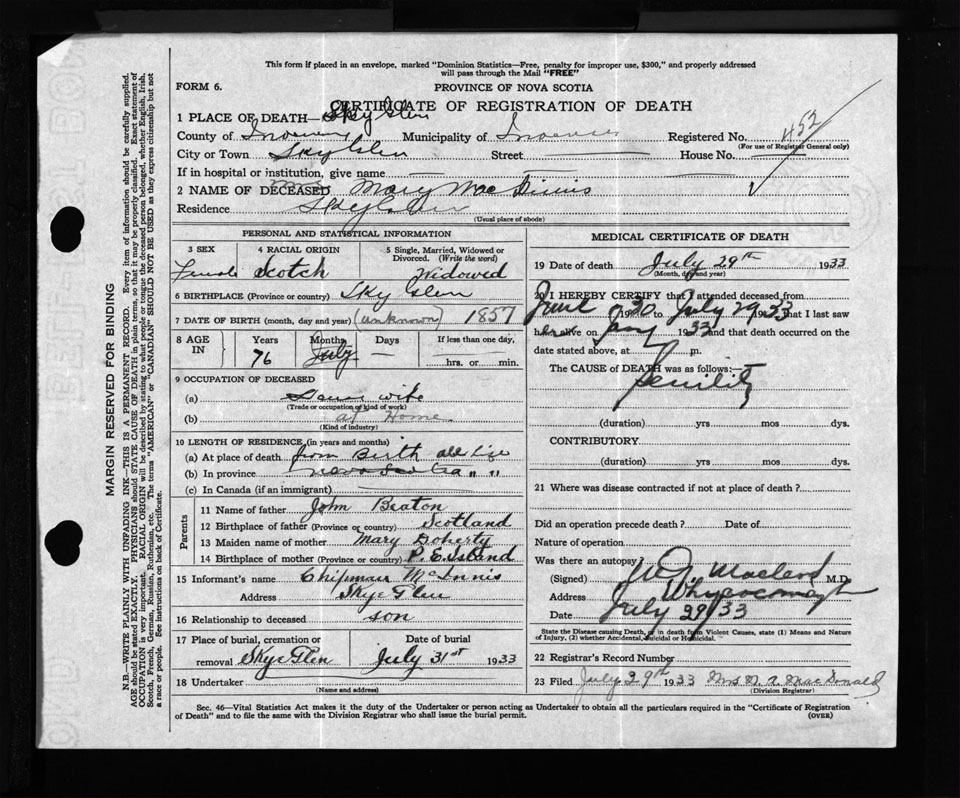 This form if placed in an envelope, marked "Dominion Statistics—Free, penalty for improper use, $300," and properly addressed
will pass through the Mail "FREE"
FORM 6.
PROVINCE OF NOVA SCOTIA
CERTIFICATE OF REGISTRATION OF DEATH
1 PLACE OF DEATH— Sky Glen
County of Municipality of Registered No. 452
(For use of Registrar General only)
City or Town Sky Glen Street House No.
If in hospital or institution, give name
2 NAME OF DECEASED Mary Mac Innis
Residence Sky Glen
(Usual place of abode)
PERSONAL AND STATISTICAL INFORMATION
3 SEX 4 RACIAL ORIGIN 5 Single, Married, Widowed or Divorced. (Write the word)
Female Scotch Widowed
6 BIRTHPLACE (Province or country) Sky Glen
7 DATE OF BIRTH (month, day and year) (unknown) 1857
8 AGE IN Years Months Days If less than one day,
76 July — hrs. or min.
9 OCCUPATION OF DECEASED
(a) House wife
(Trade or occupation of kind of work)
(b) at Home
(Kind of industry)
10 LENGTH OF RESIDENCE (in years and months)
(a) At place of death from Birth all life
(b) In province Nova Scotia " "
(c) In Canada (if an immigrant)
Parents
11 Name of father John Beaton
12 Birthplace of father (Province or country) Scotland
13 Maiden name of mother Mary Doherty
14 Birthplace of mother (Province or country) P. E. Island
15 Informant's name Chipman McInnis
Address Skye Glen
16 Relationship to deceased son
17 Place of burial, cremation or removal Skye Glen Date of burial July 31st 1933
18 Undertaker
(Name and address)
MEDICAL CERTIFICATE OF DEATH
19 Date of death July 29th 1933
(Month, day and year)
20 I HEREBY CERTIFY that I attended deceased from
June 1930 to July 29 1933 that I last saw
her alive on 1933 and that death occurred on
date stated above, at m.
The CAUSE of DEATH was as follows:—
Senility
(duration) yrs mos dys.
CONTRIBUTORY
(duration) yrs mos dys.
21 Where was disease contracted if not at place of death?
Did an operation precede death? Date of
Nature of operation
Was there an autopsy?
(Signed) Macleod M.D.
Address Whycocomagh
Date July 29/33
State the Disease causing Death, or in death from Violent Causes, state (1) Means and Nature
of Injury, (2) whether Accidental, Suicidal or Homicidal.
22 Registrar's Record Number
23 Filed July 29th 1933 Mrs M. A. MacDonald
(Division Registrar)
Sec. 46—Vital Statistics Act makes it the duty of the Undertaker or person acting as Undertaker to obtain all the particulars required in the "Certificate of Registration
of Death" and to file the same with the Division Registrar who shall issue the burial permit. (OVER)
MARGIN RESERVED FOR BINDING
N.B.—WRITE PLAINLY WITH UNFADING INK—THIS IS A PERMANENT RECORD. Every item of information should be carefully supplied.
AGE should be stated EXACTLY. PHYSICIANS should state CAUSE OF DEATH in plain terms, so that it may be properly classified. Exact statement of
OCCUPATION is very important. RACIAL ORIGIN will be described by stating to what people or tongue the deceased person belonged, whether English, Irish,
Scotch, French, German, Russian, Ruthenian, etc. The terms "AMERICAN" or "CANADIAN" SHOULD NOT BE USED as they express citizenship but not
a race or people. See instructions on back of Certificate.